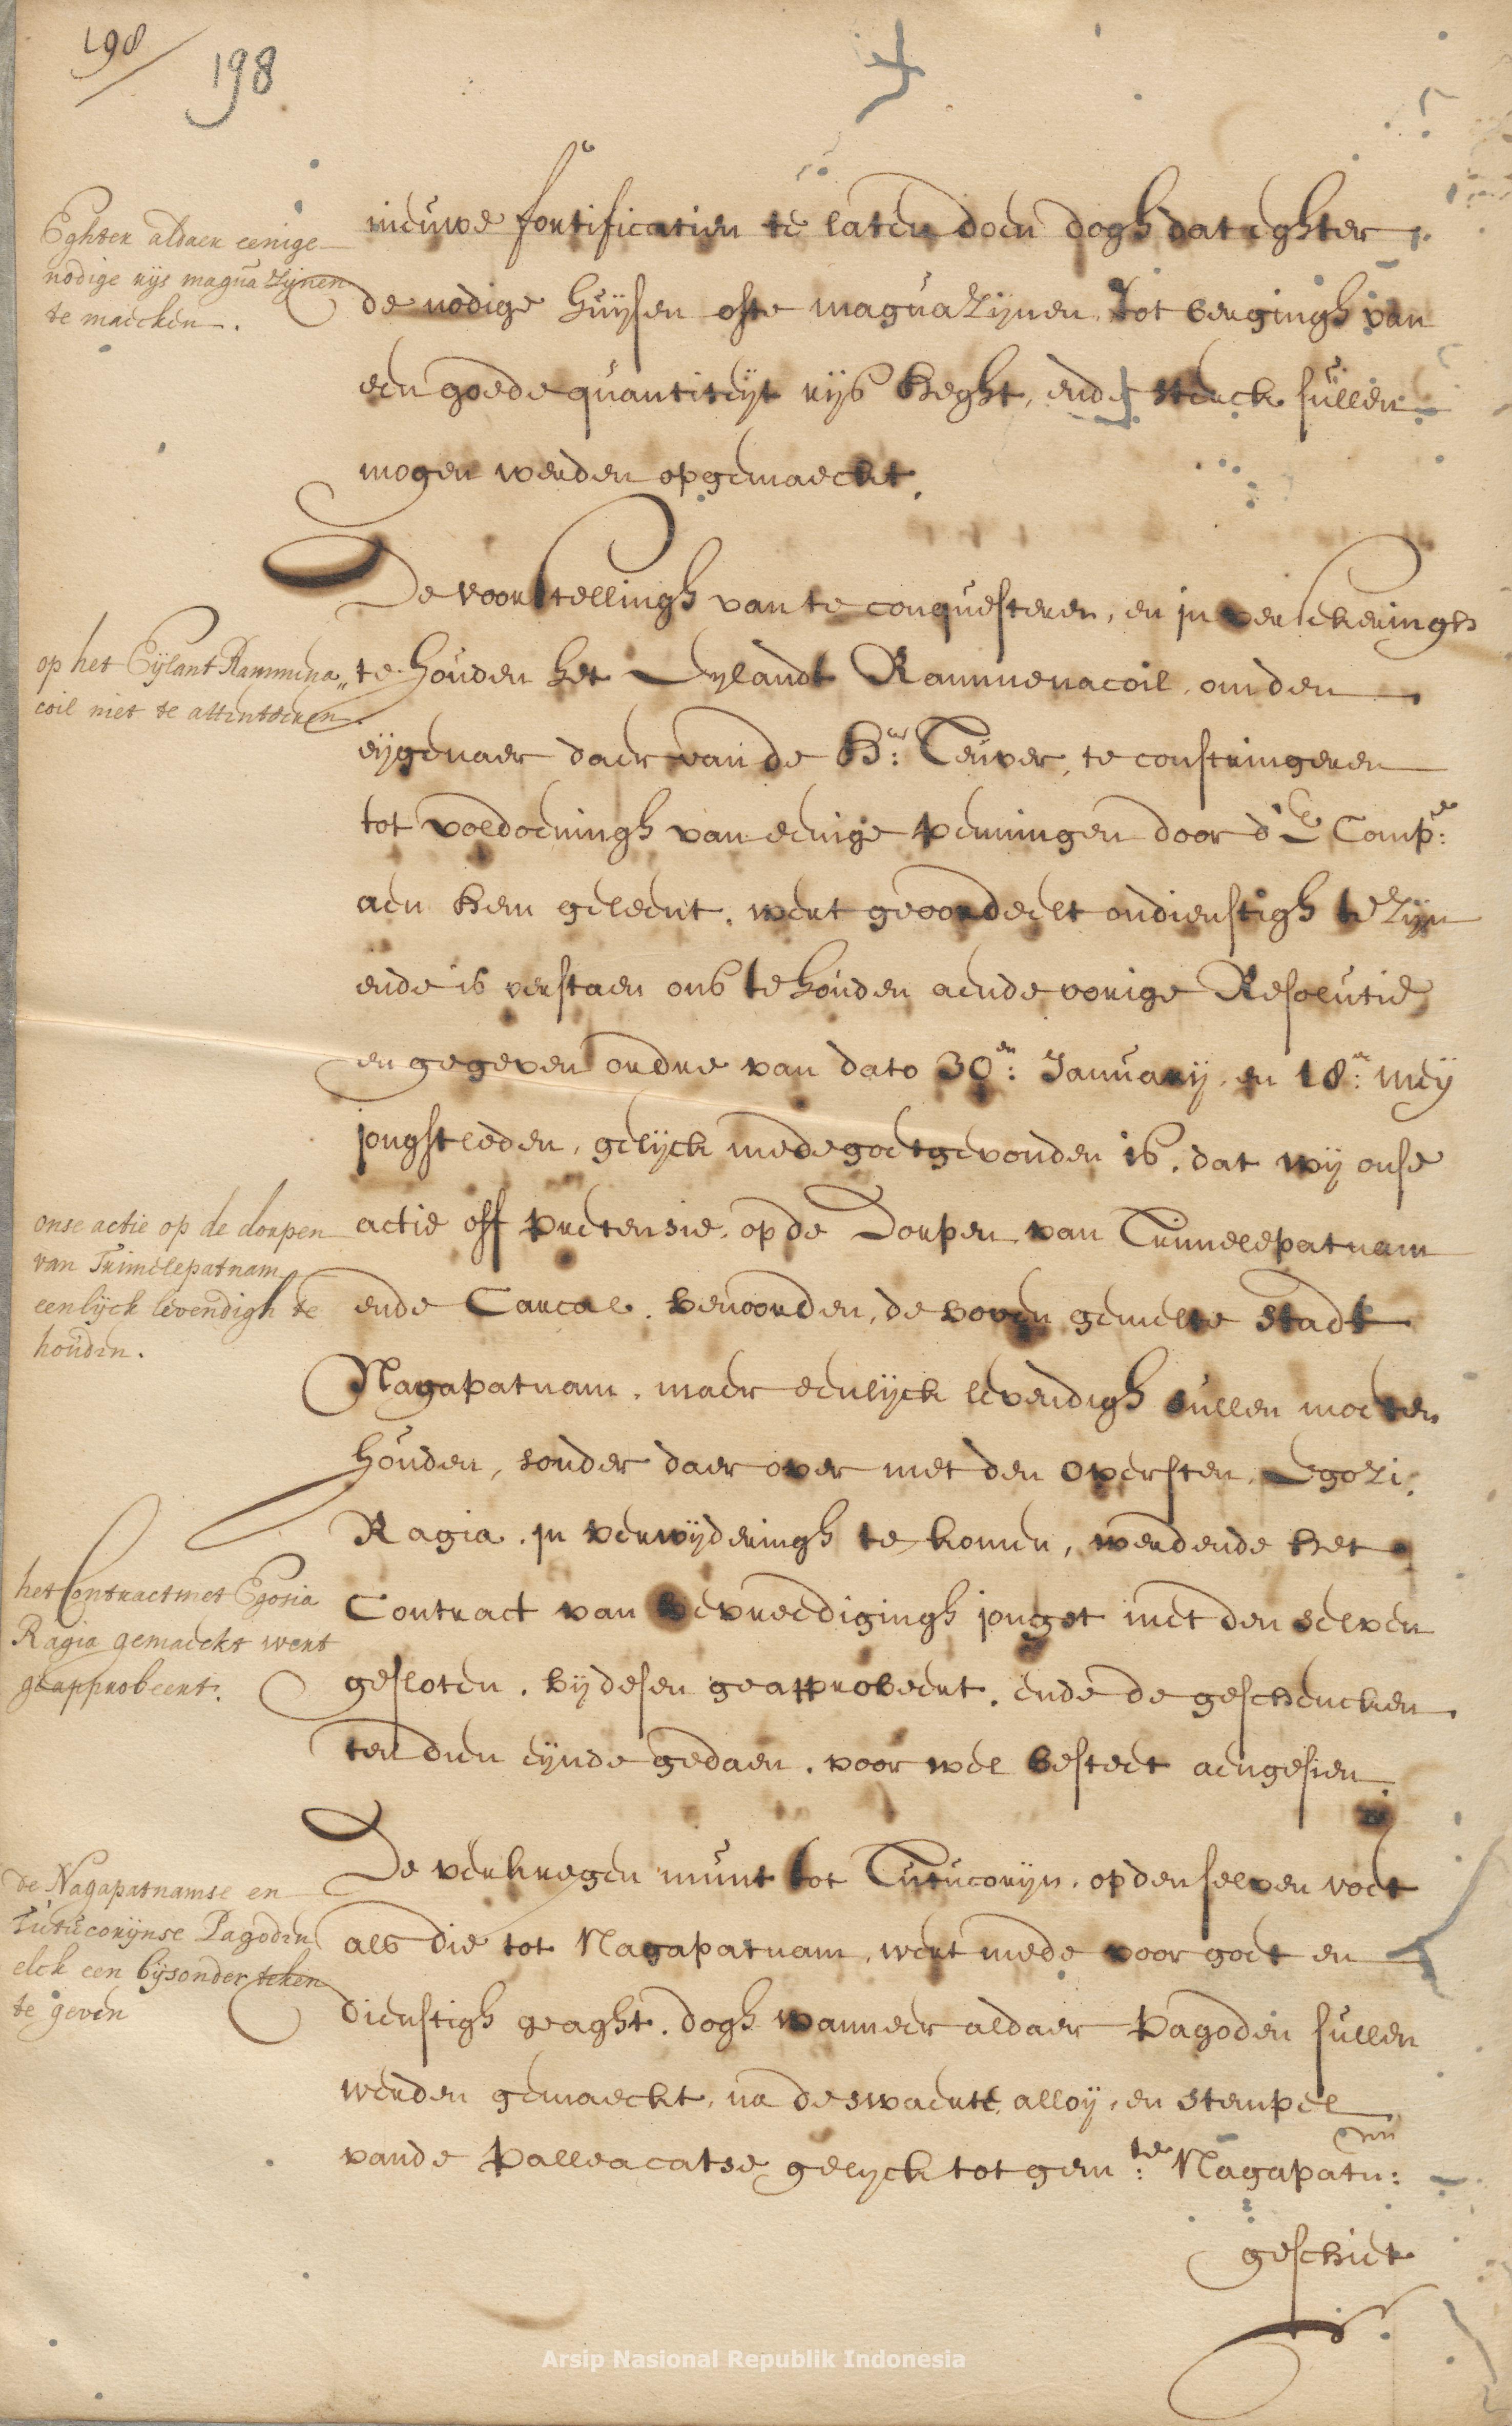 198
198
Eghter aldaer eenige
nodige rijs maguazijnen
te maecken.
nieuwe fortificatien te laten doen dogh dat eghter
de nodige huijsen ofte maguazijnen, tot bergingh van
een goede quantiteijt rijs heght, ende sterck sullen
mogen werden opgemaeckt.
De voorstellingh van te conquesteren, en in verseheringh
op het Eijlant Rammena„
coil niet te attenteren.
te houden het Eylandt Rammenacoil, om den
eijgenaer daer van de Hr: Teuver, te constringeren
tot voldoeningh van eenige penningen door d'E Compe:
aen hem geleent, wert geoordeelt ondienstigh te zijn
ende is verstaen ons te houden aende vorige Resolutie
en gegeven ordre van dato 30en: Januarij, en 18en: meij
jongstleden, gelijck mede goetgevonden is, dat wij onse
onse actie op de dorpen
van Trimelepatnam
eenlijck levendigh te
houden.
actie off pretensie, op de Dorpen van Trimelepatnam
ende Carcal, benoorden, de boven gemelte stadt
Nagapatnam, maer eenlijck levendigh sullen moeten
houden, sonder daer over met den oversten, Egozi
Ragia, in verwijderingh te komen, werdende het
het Contract met Egosia
Ragia gemaeckt wert
geapprobeert.
Contract van bevreedigingh jongst met den selven
gesloten, bij desen geapprobeert, ende de geschencken
ten dien eijnde gedaen, voor wel besteet aengesien.
De verkregen munt tot Tutucorijn, op den selven voet
de Nagapatnamse en
Tutucorijnse Pagoden
elck een bijsonder teken
te geven
als die tot Nagapatnam, wert mede voor goet en
dienstigh geaght, dogh wanneer aldaer Pagoden sullen
werden gemaeckt, na de swaerte, alloij, en stempel
vande Palleacatse gelyck tot gemte: Nagapatn:
geschiet
Arsip Nasional Republik Indonesia